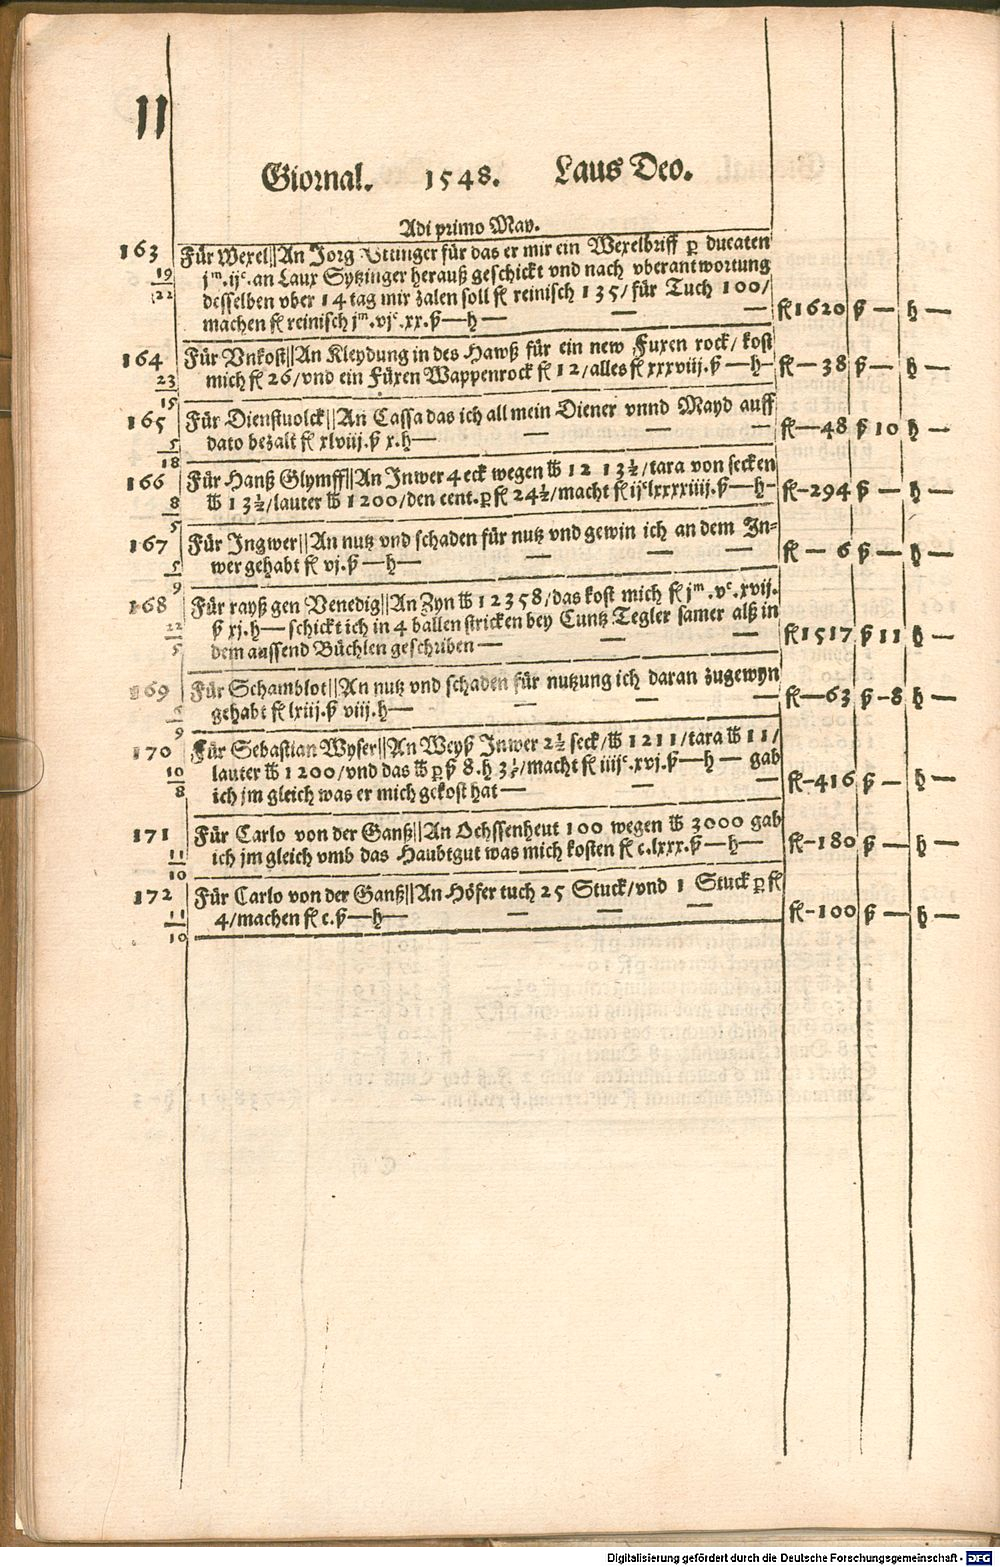 11
Giornal. 1548. Laus Deo.
Adi primo May.
163 Für Wexel||An Jorg Vttinger für das er mir ein Wexelbriff ꝑ ducaten
19 jᵐ.ijᶜ.an Laux Sytzinger herauß geschickt vnd nach vberantwortung
22 desselben vber 14 tag mir zalen soll fl reinisch 135/für Tuch 100/
machen fl reinisch jᵐ.vjᶜ.xx.ß—h— — — fl 1620 ß — h —
164 Für Vnkost||An Kleydung in des Hawß für ein new Fuxen rock/ kost
23 mich fl 26/vnd ein Füxen Wappenrock fl 12/alles fl xxxviij.ß—h— fl—38 ß— h —
15
165 Für Dienstuolck||An Cassa das ich all mein Diener vnnd Mayd auff
5 dato bezalt fl xlviij.ß x.h— — — — fl—48 ß 10 h —
18
166 Für Hanß Glymff||An Inwer 4 eck wegen ℔ 12 13½/tara von secken
8 ℔ 13½/lauter ℔ 1200/den cent.ꝑ fl 24½/macht fl ijᶜlxxxxiiij.ß—h— fl-294 ß — h —
5
167 Für Ingwer||An nutz vnd schaden für nutz vnd gewin ich an dem In-
5 wer gehabt fl vj.ß—h— — — — fl — 6 ß — h —
9
168 Für rayß gen Venedig||An Zyn ℔ 12358/das kost mich fl jᵐ.vᶜ.xvij.
22 ß xj.h— schickt ich in 4 ballen stricken bey Cuntz Tegler samer alß in
5 dem aussend Büchlen geschriben — — — fl 1517 ß 11 h —
169 Für Schamblot||An nutz vnd schaden für nutzung ich daran zugewyn
gehabt fl lxiij.ß viij.h— — — — fl—63 ß-8 h —
9
170 Für Sebastian Wyser||An Weyß Inwer 2½ seck/℔ 1211/tara ℔ 11/
10 lauter ℔ 1200/vnd das ℔ ꝑ ß 8.h 3⅕/macht fl iiijᶜ.xvj.ß—h— gab
8 ich jm gleich was er mich gekost hat — — — fl-416 ß — h —
171 Für Carlo von der Ganß||An Ochssenheut 100 wegen ℔ 3000 gab
11 ich jm gleich vmb das Haubtgut was mich kosten fl c.lxxx.ß—h— fl-180 ß — h —
10
172 Für Carlo von der Ganß||An Höfer tuch 25 Stuck/vnd 1 Stuck ꝑ fl
11 4/machen fl c.ß—h— — — — fl-100 ß — h —
10
Digitalisierung gefördert durch die Deutsche Forschungsgemeinschaft - DFG